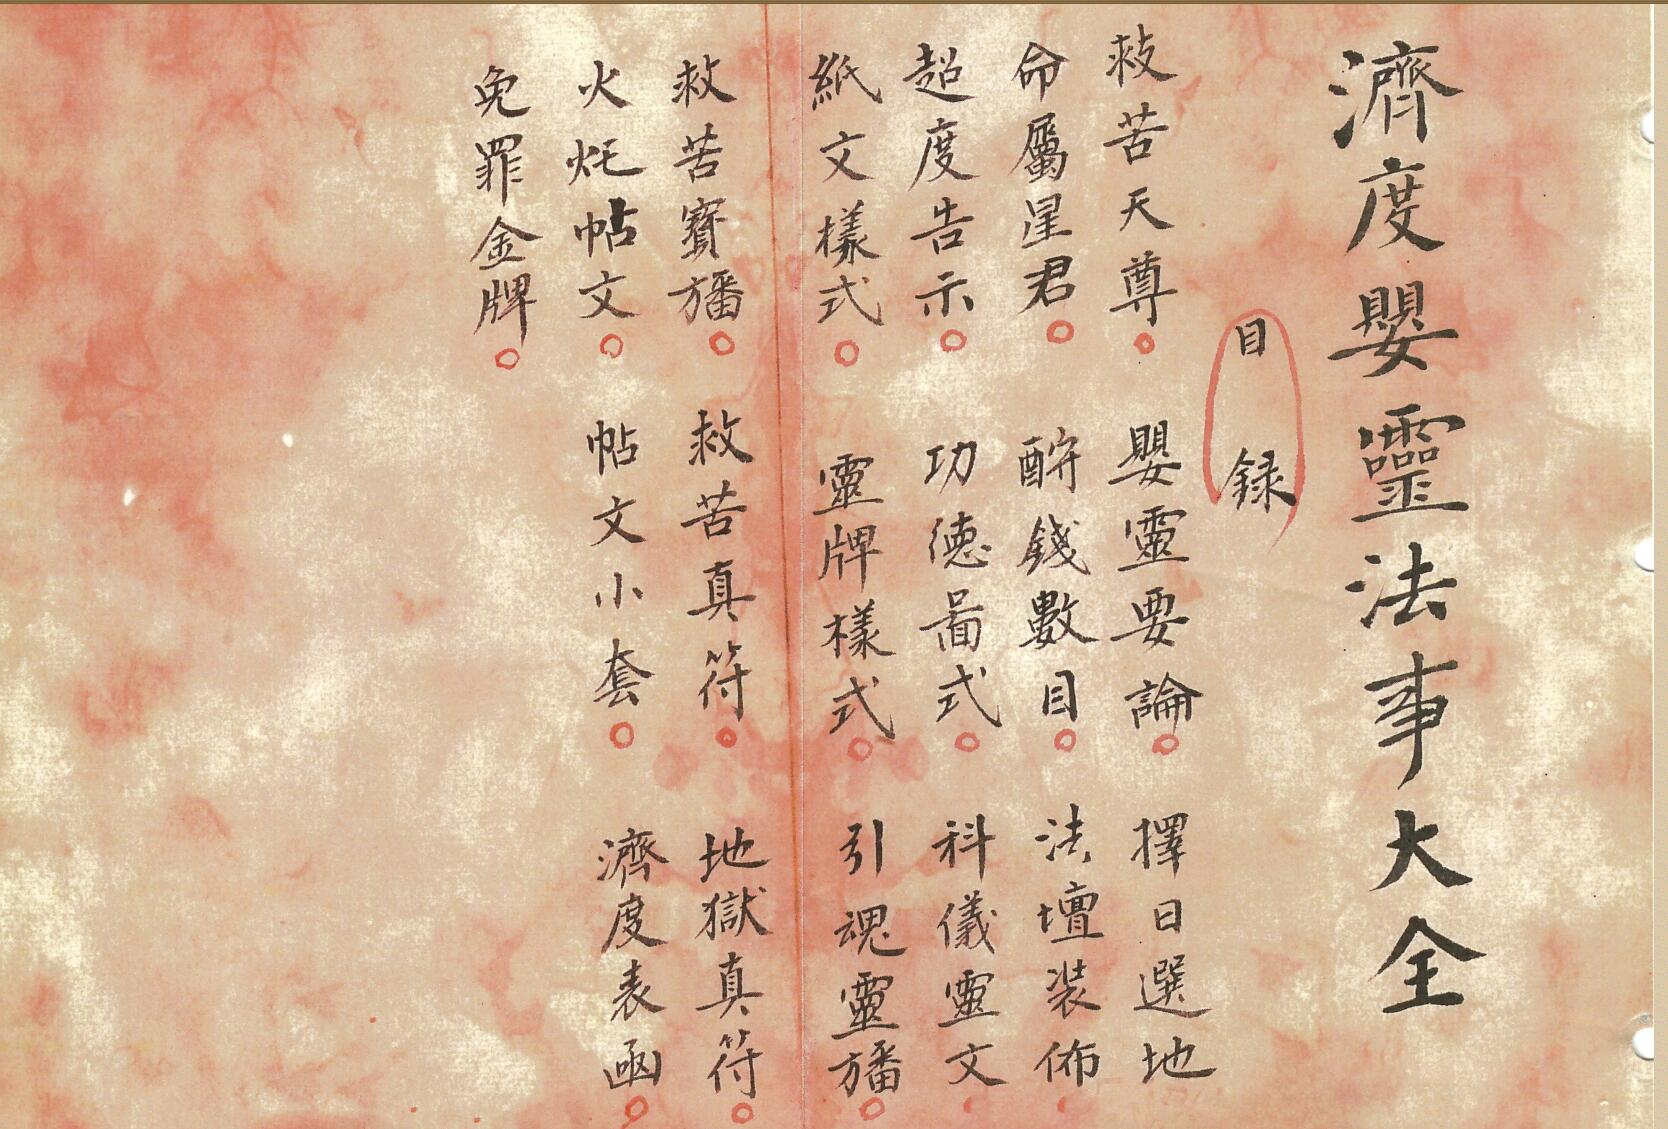 濟度嬰靈法事大全
目錄
救苦天尊 嬰靈要論 擇日選地
命屬星君 酧錢數目 法壇裝佈
超度告示 功德圖式 科儀靈文
紙文樣式 靈牌樣式 引魂靈旛
救苦寶旛 救苦真符 地獄真符
火炁帖文 帖文小套 濟度表函
免罪金牌